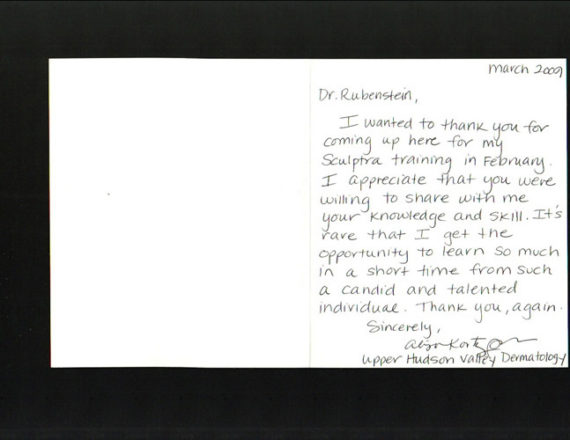 March 2009
Dr. Rubenstein,
I wanted to thank you for
coming up here for my
Sculptra training in February.
I appreciate that you were
willing to share with me
your knowledge and skill. It's
rare that I get the
opportunity to learn so much
in a short time from such
a candid and talented
individual. Thank you, again.
Sincerely,
Upper Hudson Valley Dermatology